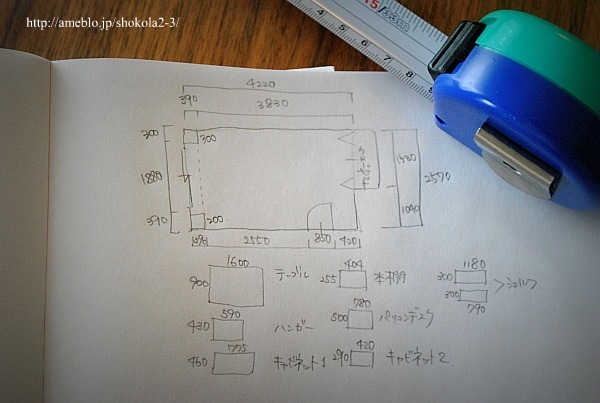 http://ameblo.jp/shokola2-3/
15
4220
390 3830
300 300
1880
390 200
1530
2570
1040
390 2550 850 420
1600
900 テーブル
404
255 本棚
1180
300
300
790
シェルフ
590
430 ハンガー
780
500 パソコンデスク
775
460 キャビネット1
420
290 キャビネット2